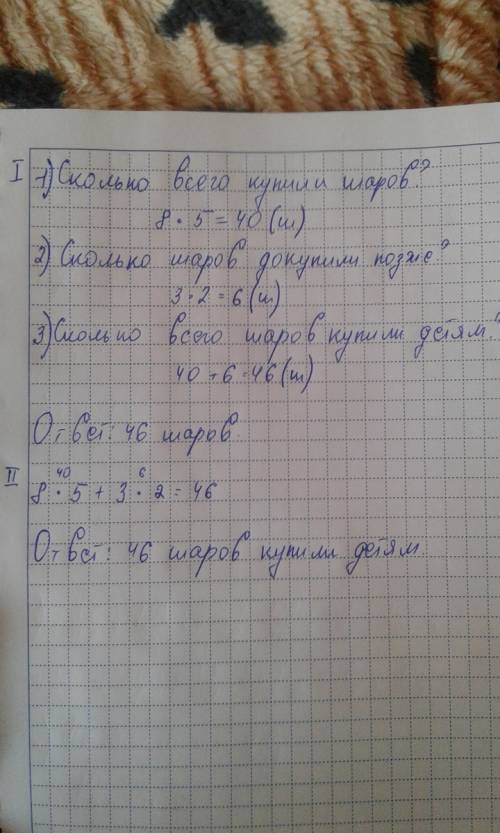 I 1) Сколько всего купили шаров?
8 · 5 = 40 (ш)
2) Сколько шаров докупили позже?
3 · 2 = 6 (ш)
3) Сколько всего шаров купили детям?
40 + 6 = 46 (ш)
Ответ: 46 шаров.
40 6
II 8 · 5 + 3 · 2 = 46
Ответ: 46 шаров купили детям.